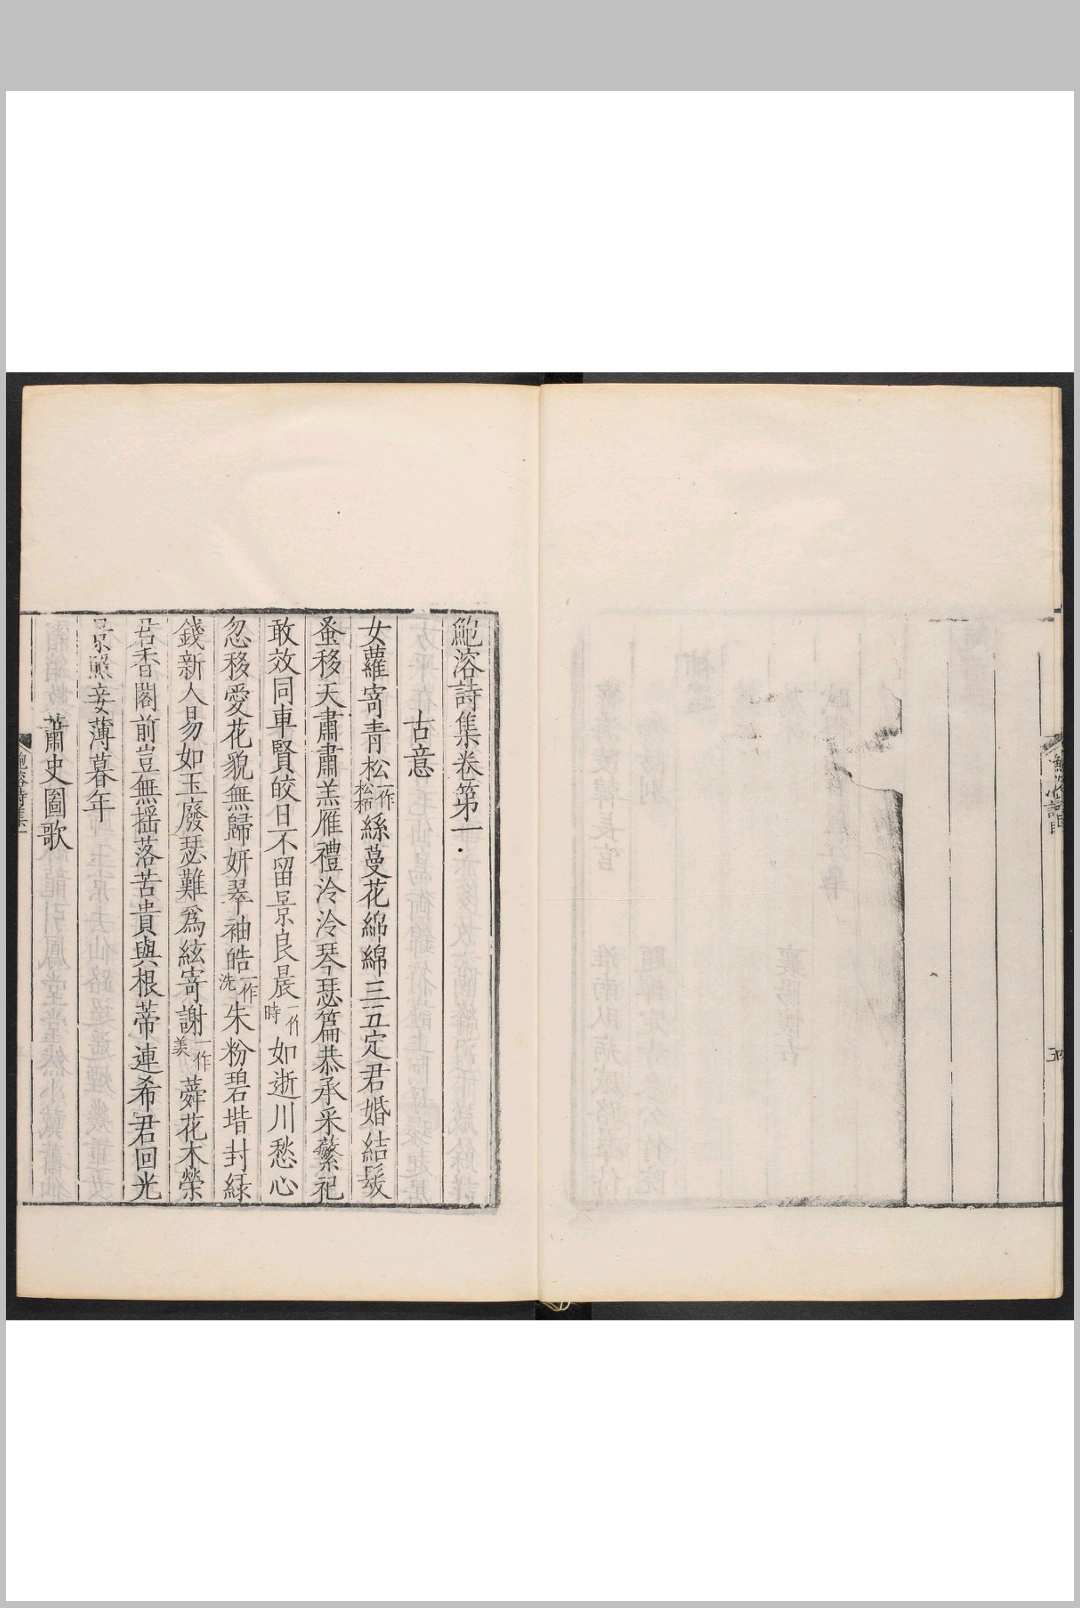 鮑溶詩集卷第一
古意
女蘿寄青松一作松柏絲蔓花綿綿三五定君婚結髮
蚤移天肅肅羔雁禮泠泠琴瑟篇恭承采蘩祀
敢效同車賢皎日不留景良晨一作時如逝川愁心
忽移愛花貌無歸妍翠袖皓一作洗朱粉碧堦封綠
錢新人易如玉廢瑟難為絃寄謝一作美蕣花木榮
君香閣前豈無揺落苦貴與根蒂連希君回光
景照妾薄暮年
蕭史圖歌